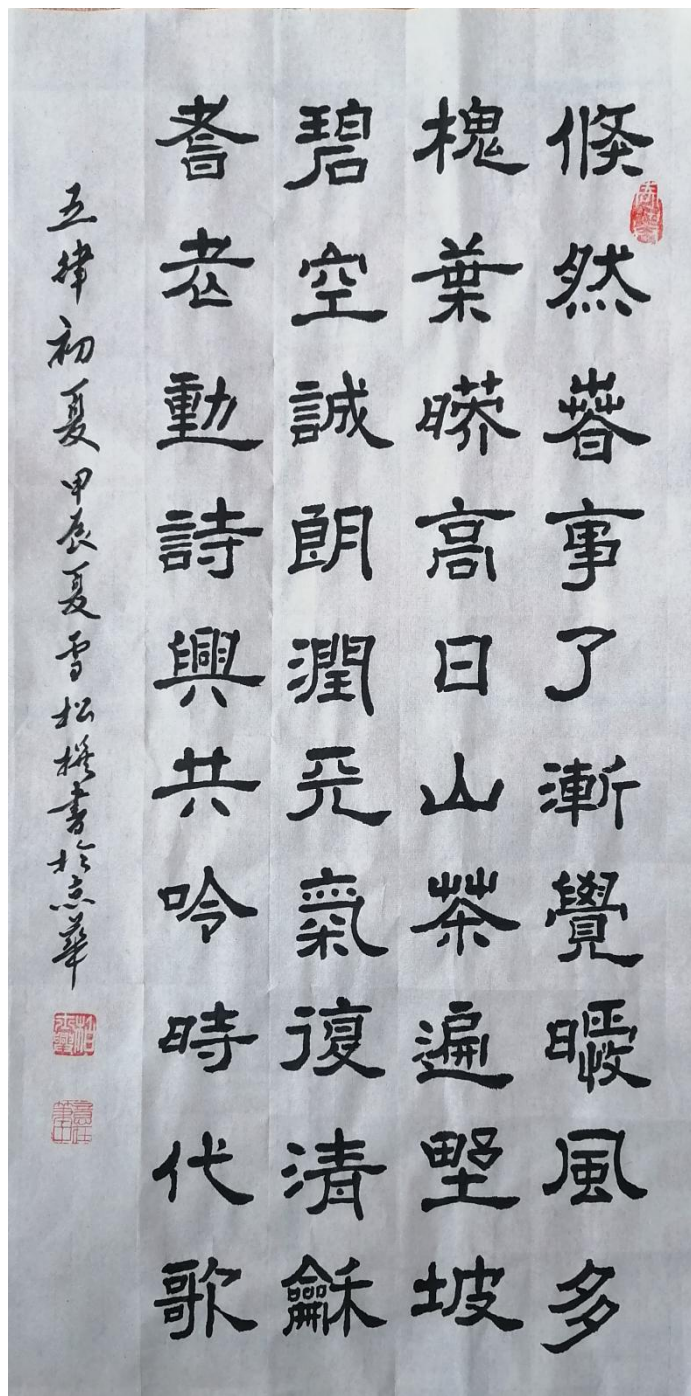 倏然春事了漸覺暖風多
槐葉高日山茶遍野坡
碧空誠朗潤天氣復清龢
耆老動詩興共吟時代歌
五律初夏甲辰夏雪松撰書於京華